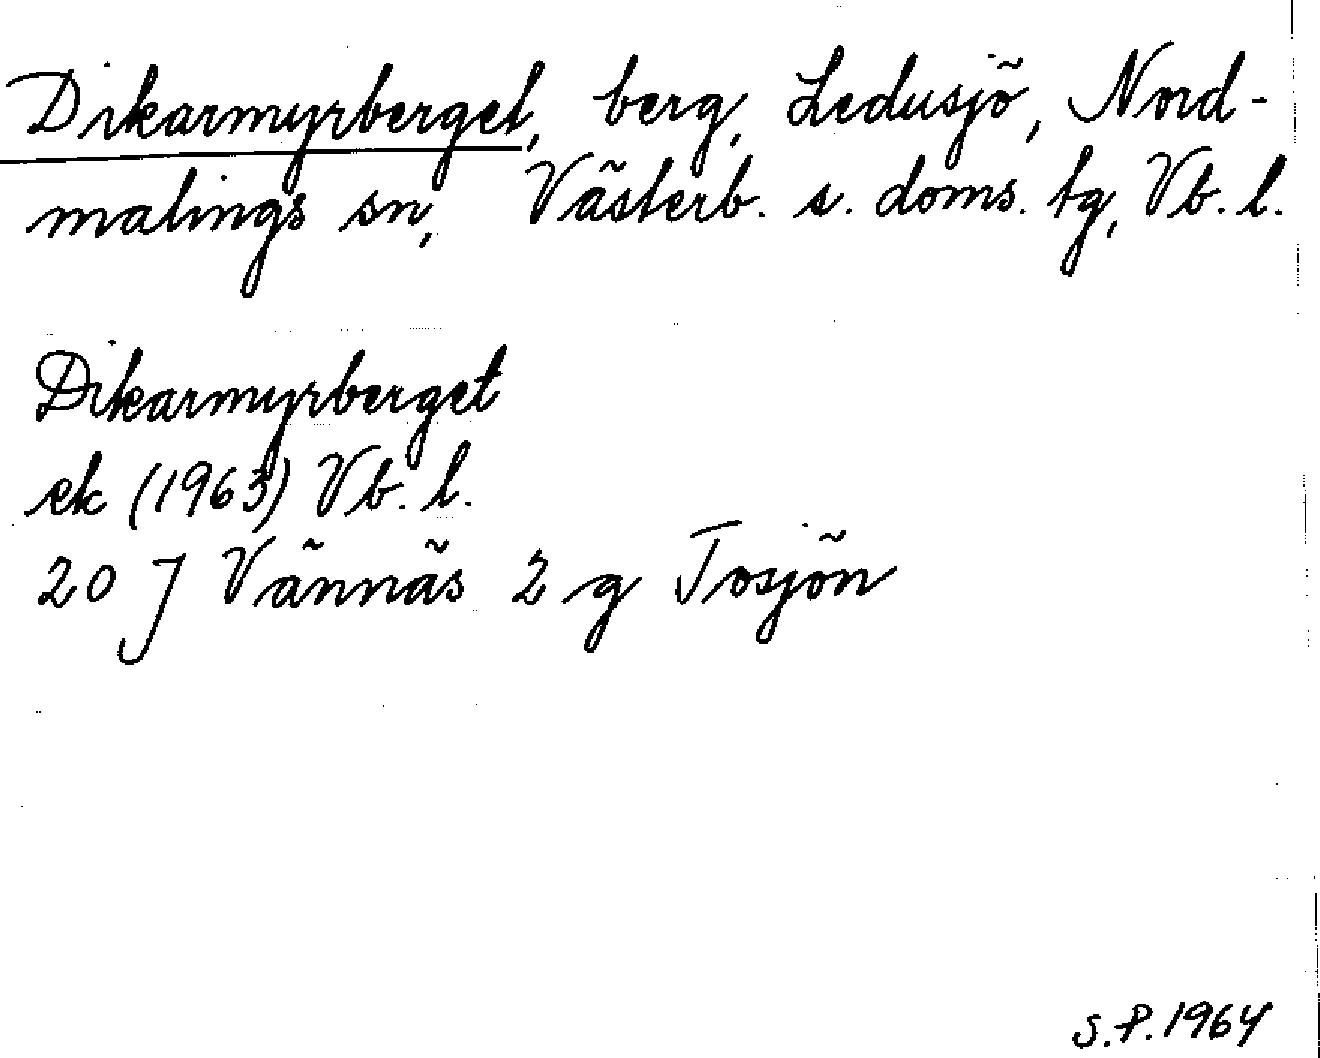 Dikarmyrberget, berg, Ledusjö, Nord-
malings sn, Västerb. s. doms. tg, Vb. l.
Dikarmyrberget
ek (1963) Vb. l.
20 J Vännäs 2 g Tosjön
S.P. 1964